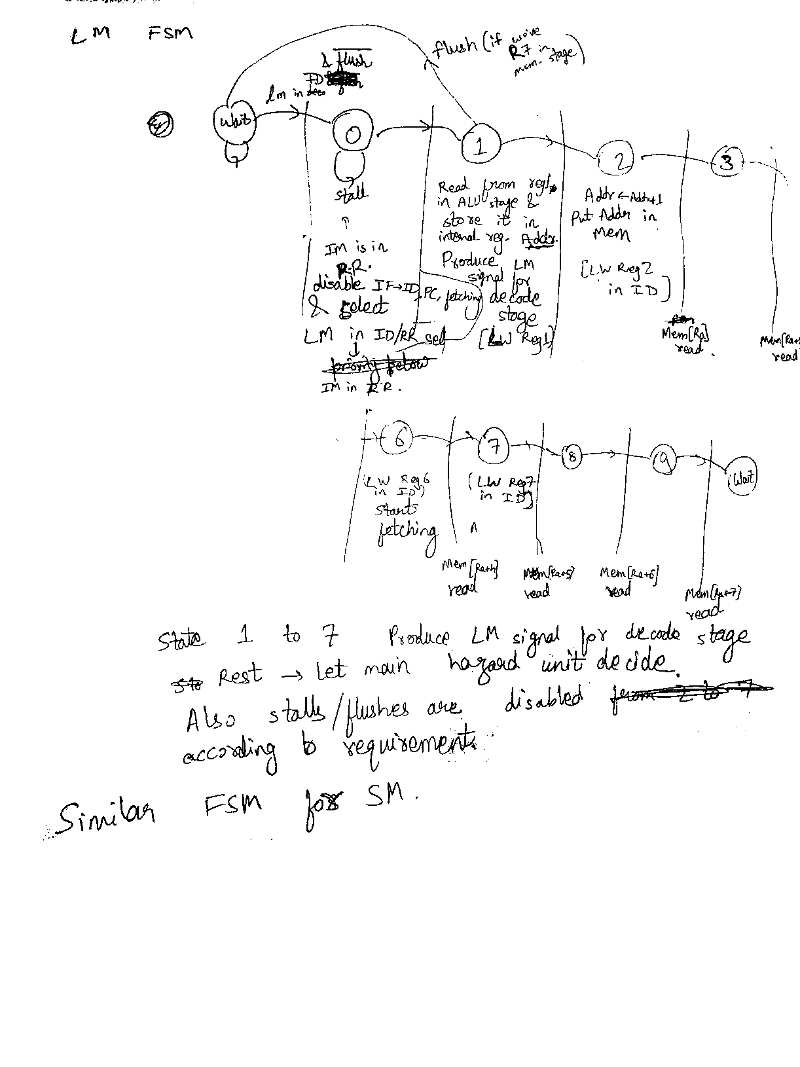 LM FSM
flush (if we've
R7 in
mem. stage)
& flush
ID
lm in
wait
0
1
2
3
stall
↑
IM is in
R.R.
disable IF→ID, PC, fetching
& select
LM in ID/RR sel
↓
priority below
IM in RR.
Read from reg1
in ALU stage &
store it in
internal reg. Addr.
Produce LM
signal for
decode
stage
[LW Reg1]
Addr ← Addr+1
Put Addr in
Mem
[LW Reg2
in ID]
Mem[Ra]
read.
Mem[Ra+1
read
6
7
8
9
Wait
(LW Reg6
in ID)
starts
fetching
[LW Reg7
in ID]
Mem[Ra+4]
read
Mem[Ra+5]
read
Mem[Ra+6]
read
Mem[Ra+7]
read
State 1 to 7 Produce LM signal for decode stage
Rest → Let main hazard unit decide.
Also stalls/flushes are disabled from 2 to 7
according to requirement.
Similar FSM for SM.